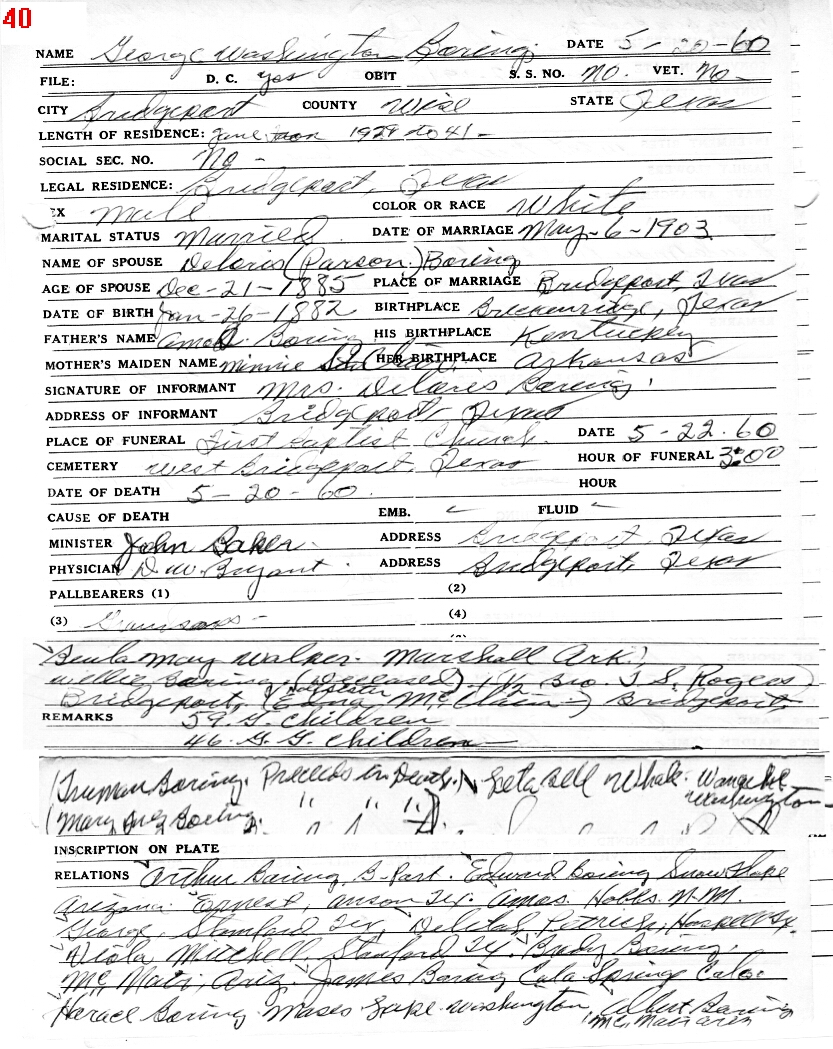 40
NAME George Washington Boring DATE 5-20-60
FILE: D. C. yes OBIT S. S. NO. No. VET. No-
CITY Bridgeport COUNTY Wise STATE Texas
LENGTH OF RESIDENCE: 1929 to 41-
SOCIAL SEC. NO. No-
LEGAL RESIDENCE: Bridgeport, Texas
EX Male COLOR OR RACE White
MARITAL STATUS Married DATE OF MARRIAGE May-6-1903
NAME OF SPOUSE Deloris (Parson) Boring
AGE OF SPOUSE Dec-21-1885 PLACE OF MARRIAGE Bridgeport, Texas
DATE OF BIRTH Jan-26-1882 BIRTHPLACE Breckenridge, Texas
FATHER'S NAME Boring HIS BIRTHPLACE Kentuckey
MOTHER'S MAIDEN NAME Minnie HER BIRTHPLACE Arkansas
SIGNATURE OF INFORMANT Mrs. Deloris Boring
ADDRESS OF INFORMANT Bridgeport Texas
PLACE OF FUNERAL First Baptist Church DATE 5-22-60
CEMETERY West Bridgeport, Texas HOUR OF FUNERAL 3:00
DATE OF DEATH 5-20-60 HOUR
CAUSE OF DEATH EMB. FLUID
MINISTER John Baker ADDRESS Bridgeport, Texas
PHYSICIAN D. W. Bryant ADDRESS Bridgeport, Texas
PALLBEARERS (1) (2)
(3) Grandsons- (4)
Beula May Walker. Marshall Ark.
Willie Boring (Deceased) 1/2 Bro. J. S. Rogers)
Bridgeport, (Half sister Edna McClain-) Bridgeport
REMARKS 59 G. Children
46. G. G. Children
(Truman Boring. Preceeds in Death.) Leta Bell Washington
(Mary Inez Boring. " " ")
INSCRIPTION ON PLATE
RELATIONS Arthur Boring, B-Port. Edward Boring Snowflake
Arizona. Ernest, Anson Tex. Amos. Hobbs. N.M.
George, Stamford Tex, Delilah Haskell Tx.
Viola Mitchell, Stamford Tx. Boring,
Ariz. James Boring Colo Springs Colo.
Horace Boring Moses Lake Washington Albert Boring